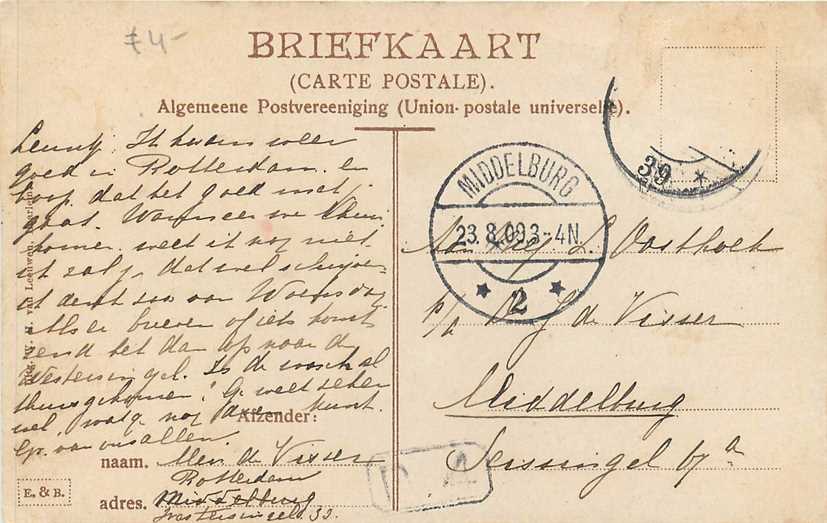 £ 4-
BRIEFKAART
(CARTE POSTALE).
Algemeene Postvereeniging (Union postale universelle).
Ik kwam weer
goed in Rotterdam. en
hoop dat het goed met je
gaat. Wanneer we thuis
komen weet ik nog niet
ik zal je dat wel schrijven
ik denk zoo van Woensdag.
Als er brieven of iets komt
zend het dan op naar de
Westersingel. Is de wasch al
thuisgekomen? Ge weet zeker
wel, waar nog kunt.
van ons allen.
Afzender:
naam. Mev de Visser
Rotterdam
adres. Middelburg
Westersingel 33.
E. & B.
MIDDELBURG
23.8.09 3-4N.
2
39
Aan Mej L. Oosthoek
p/a de Visser
Middelburg
Seissingel